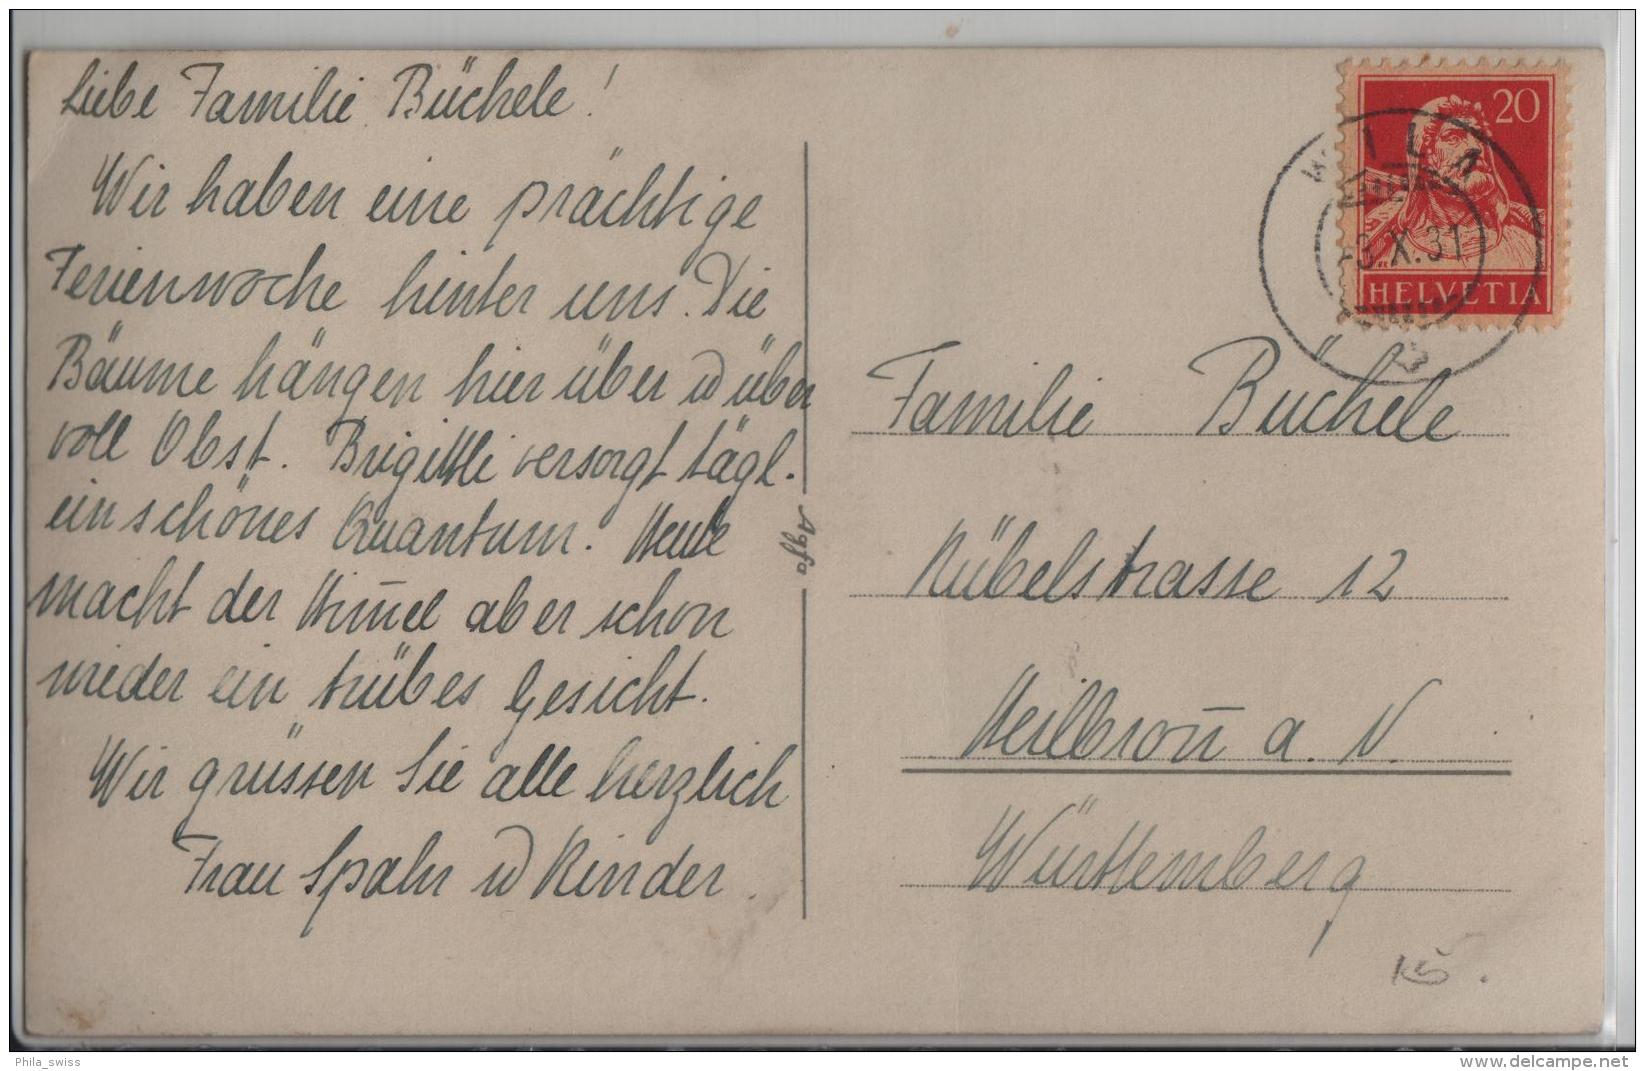 Liebe Familie Büchele!
Wir haben eine prächtige
Ferienwoche hinter uns. Die
Bäume hängen hier über u über
voll Obst. Brigittli versorgt tägl.
ein schönes Quantum. Heute
macht der Him̅el aber schon
wieder ein trübes Gesicht.
Wir grüssen Sie alle herzlich
Frau Spahr u Kinder.
Agfa
20
HELVETIA
WILA
-3.X.31
Familie Büchele
Rübelstrasse 12
Heilbron̅ a. N.
Württemberg
Phila_swiss
www.delcampe.net